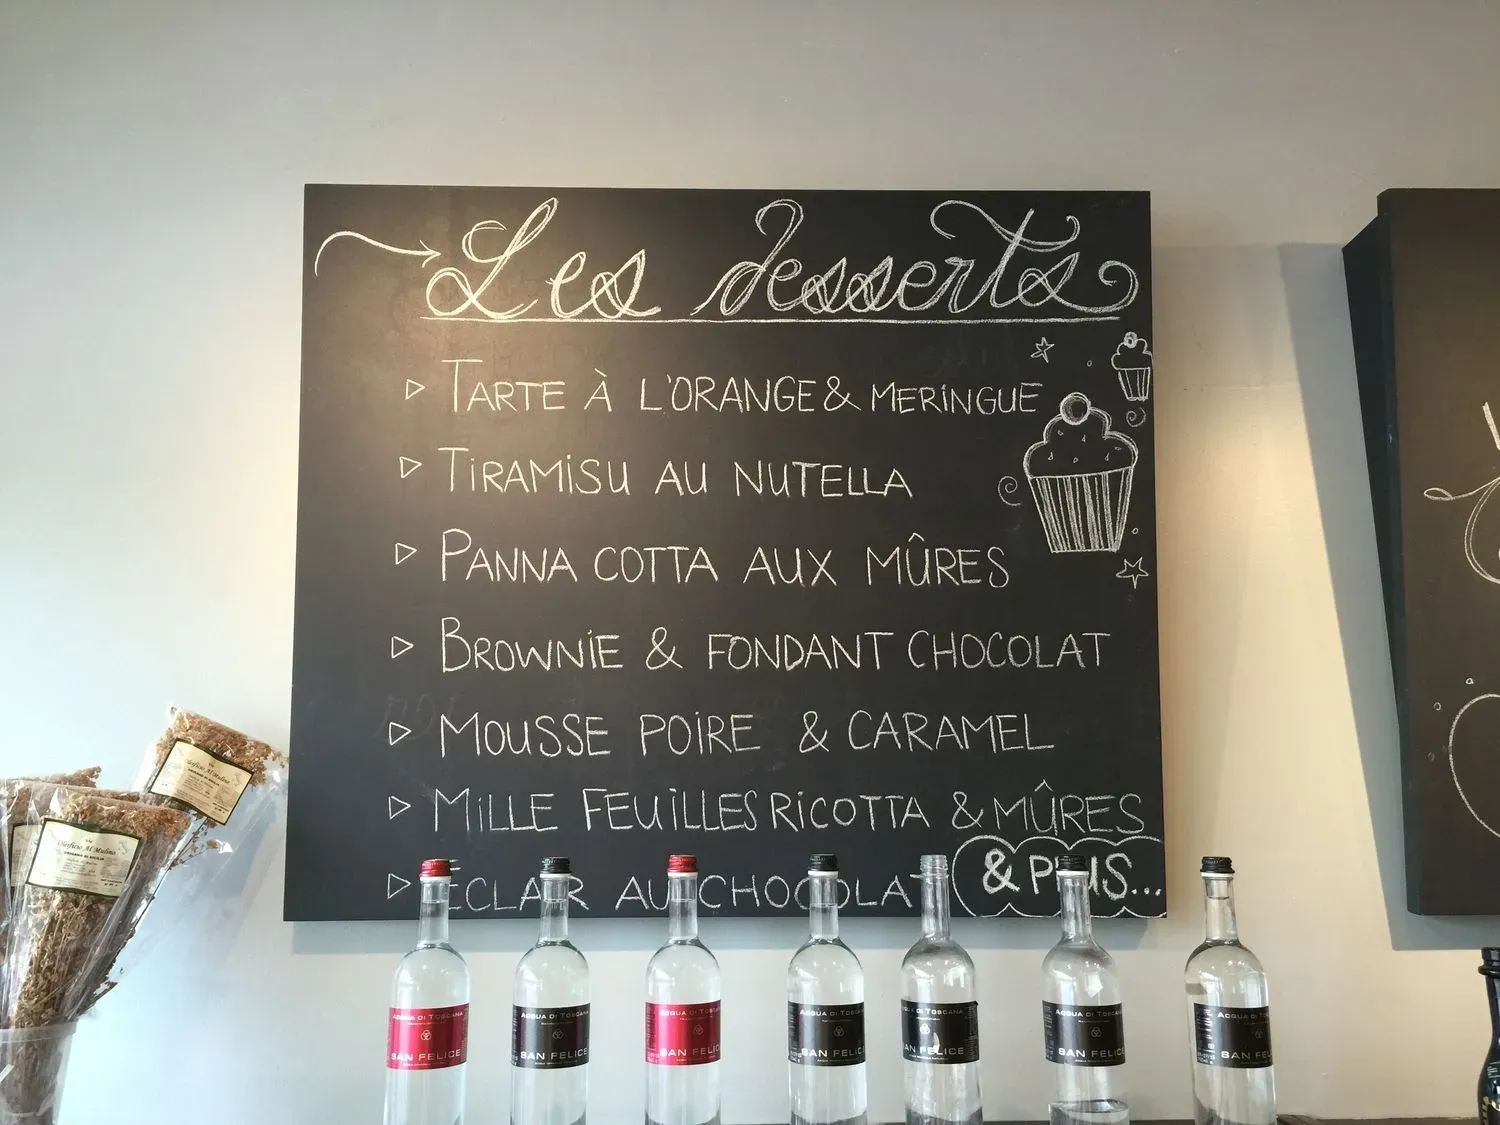 Les desserts
TARTE À L'ORANGE & MERINGUE
TIRAMISU AU NUTELLA
PANNA COTTA AUX MÛRES
BROWNIE & FONDANT CHOCOLAT
MOUSSE POIRE & CARAMEL
MILLE FEUILLES RICOTTA & MÛRES
ECLAIR AU CHOCOLAT
& PLUS...
Oleificio Al Mulino
ORIGANO DI SICILIA
Oleificio Al Mulino
ORIGANO DI SICILIA
ACQUA DI TOSCANA
SAN FELICE
ACQUA DI TOSCANA
SAN FELICE
ACQUA DI TOSCANA
SAN FELICE
ACQUA DI TOSCANA
SAN FELICE
ACQUA DI TOSCANA
SAN FELICE
ACQUA DI TOSCANA
SAN FELICE
ACQUA DI TOSCANA
SAN FELICE